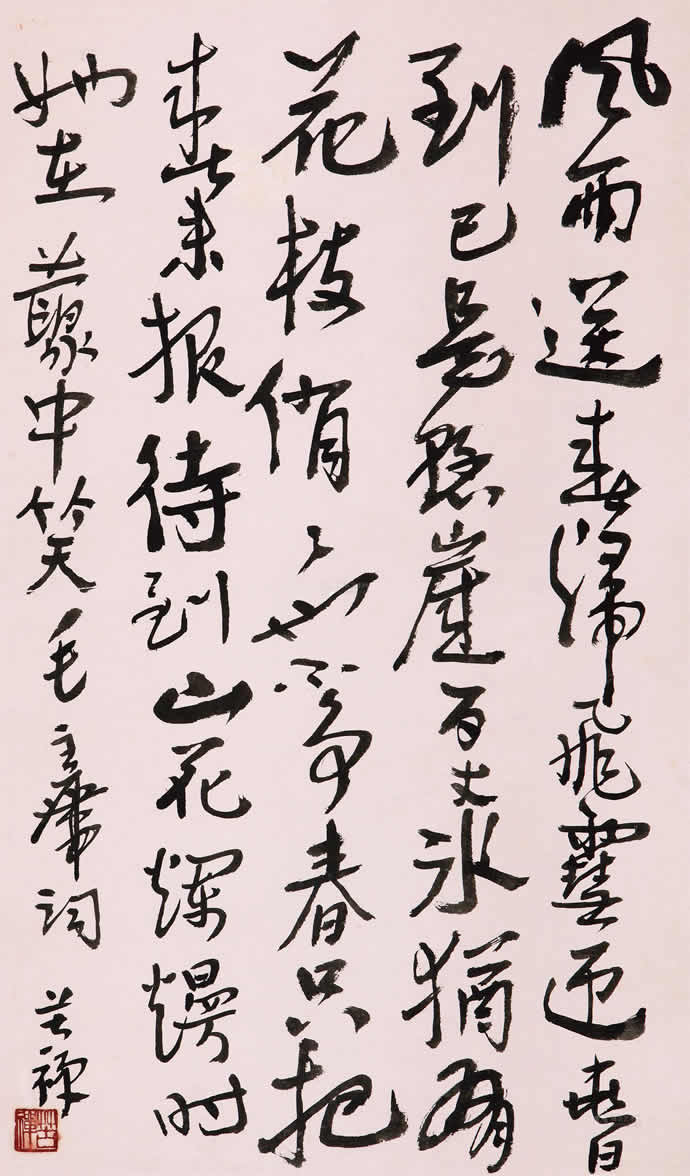 風雨送春歸飛雪迎春
到已是懸崖百丈冰猶有
花枝俏々也不爭春只把
春來報待到山花爛熳时
她在藂中笑毛主席詞 苦禪
苦禪